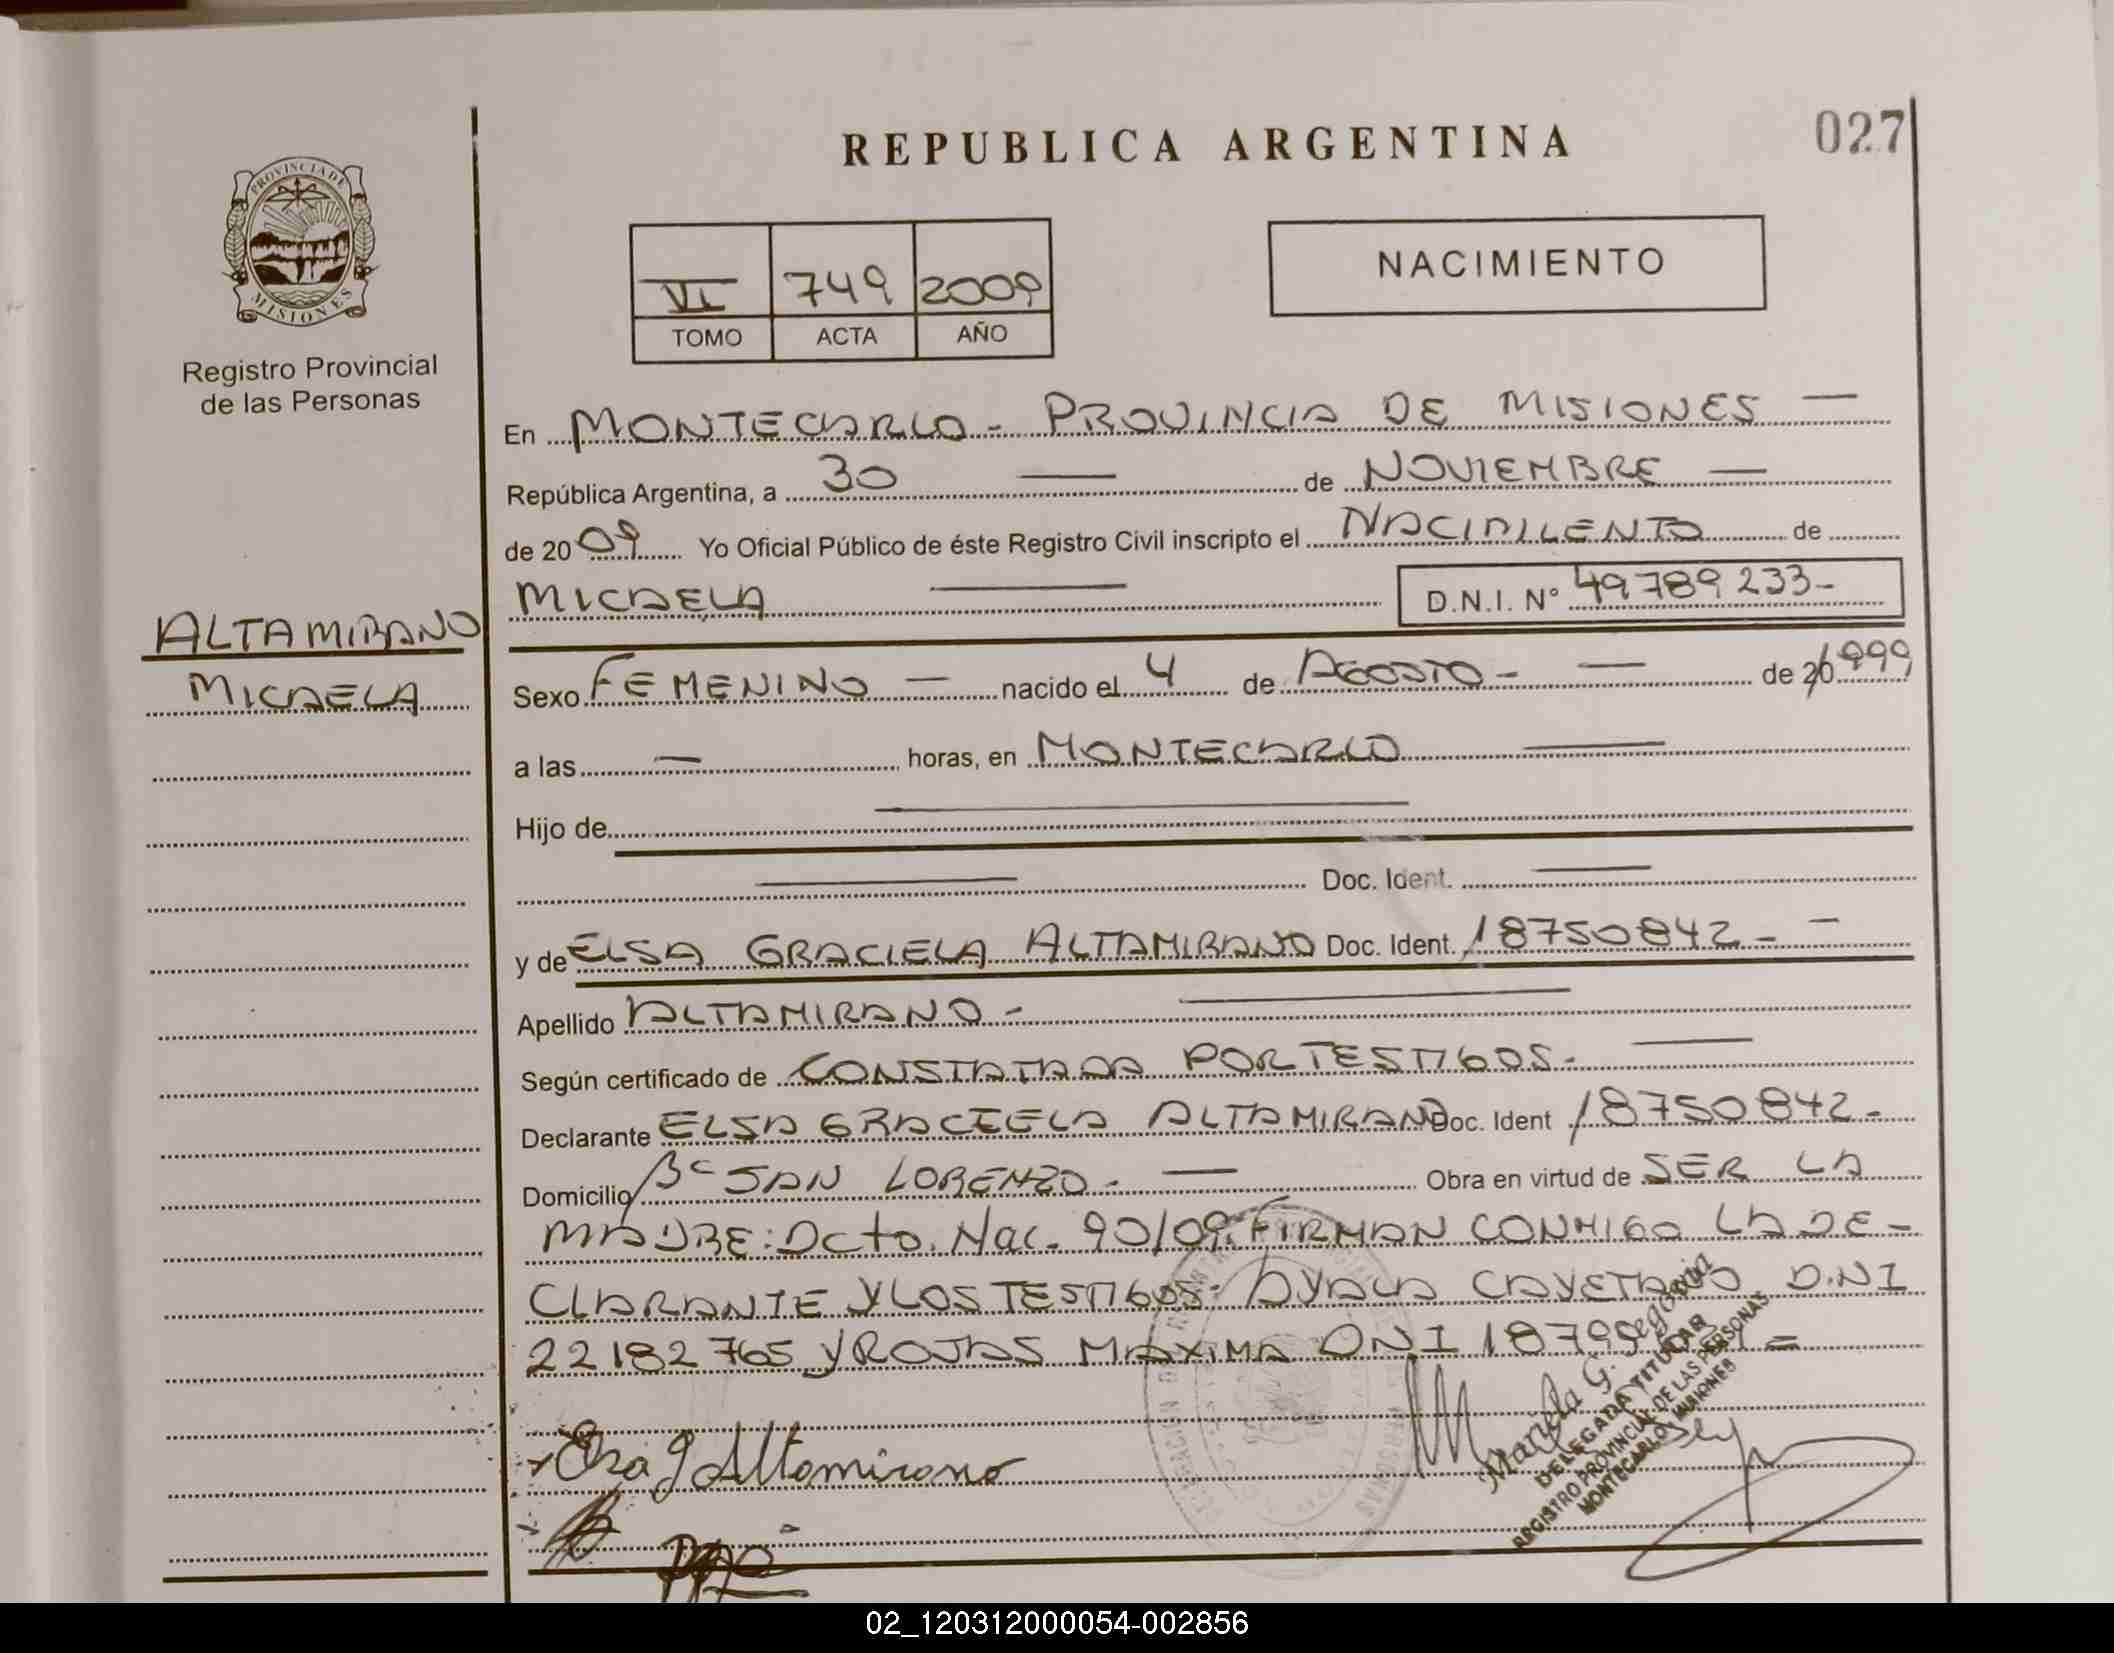 REPUBLICA ARGENTINA
027
PROVINCIA DE
MISIONES
Registro Provincial
de las Personas
VI 749 2009
TOMO ACTA AÑO
NACIMIENTO
En MONTECARLO - PROVINCIA DE MISIONES —
República Argentina, a 30 — de NOVIEMBRE —
de 2009 Yo Oficial Público de éste Registro Civil inscripto el NACIMIENTO de
MICAELA — D.N.I. N° 49789233-
ALTAMIRANO
MICAELA
Sexo FEMENINO — nacido el 4 de AGOSTO - — de 1999
a las — horas, en MONTECARLO —
Hijo de —
— Doc. Ident. —
y de ELSA GRACIELA ALTAMIRANO Doc. Ident. 18750842 - —
Apellido ALTAMIRANO - —
Según certificado de CONSTATADA POR TESTIGOS - —
Declarante ELSA GRACIELA ALTAMIRANO Doc. Ident 18750842 -
Domicilio B° SAN LORENZO - — Obra en virtud de SER LA
MADRE: Dcto. Nac. 90/09. FIRMAN CONMIGO LA DE=
CLARANTE Y LOS TESTIGOS: AYALA CAYETANO D.N.I
22182765 Y ROJAS MAXIMA DNI 18799
Elsa G Altamirano
Mariela G.
DELEGADA TITULAR
REGISTRO PROVINCIAL DE LAS PERSONAS
MONTECARLO MISIONES
02_120312000054-002856